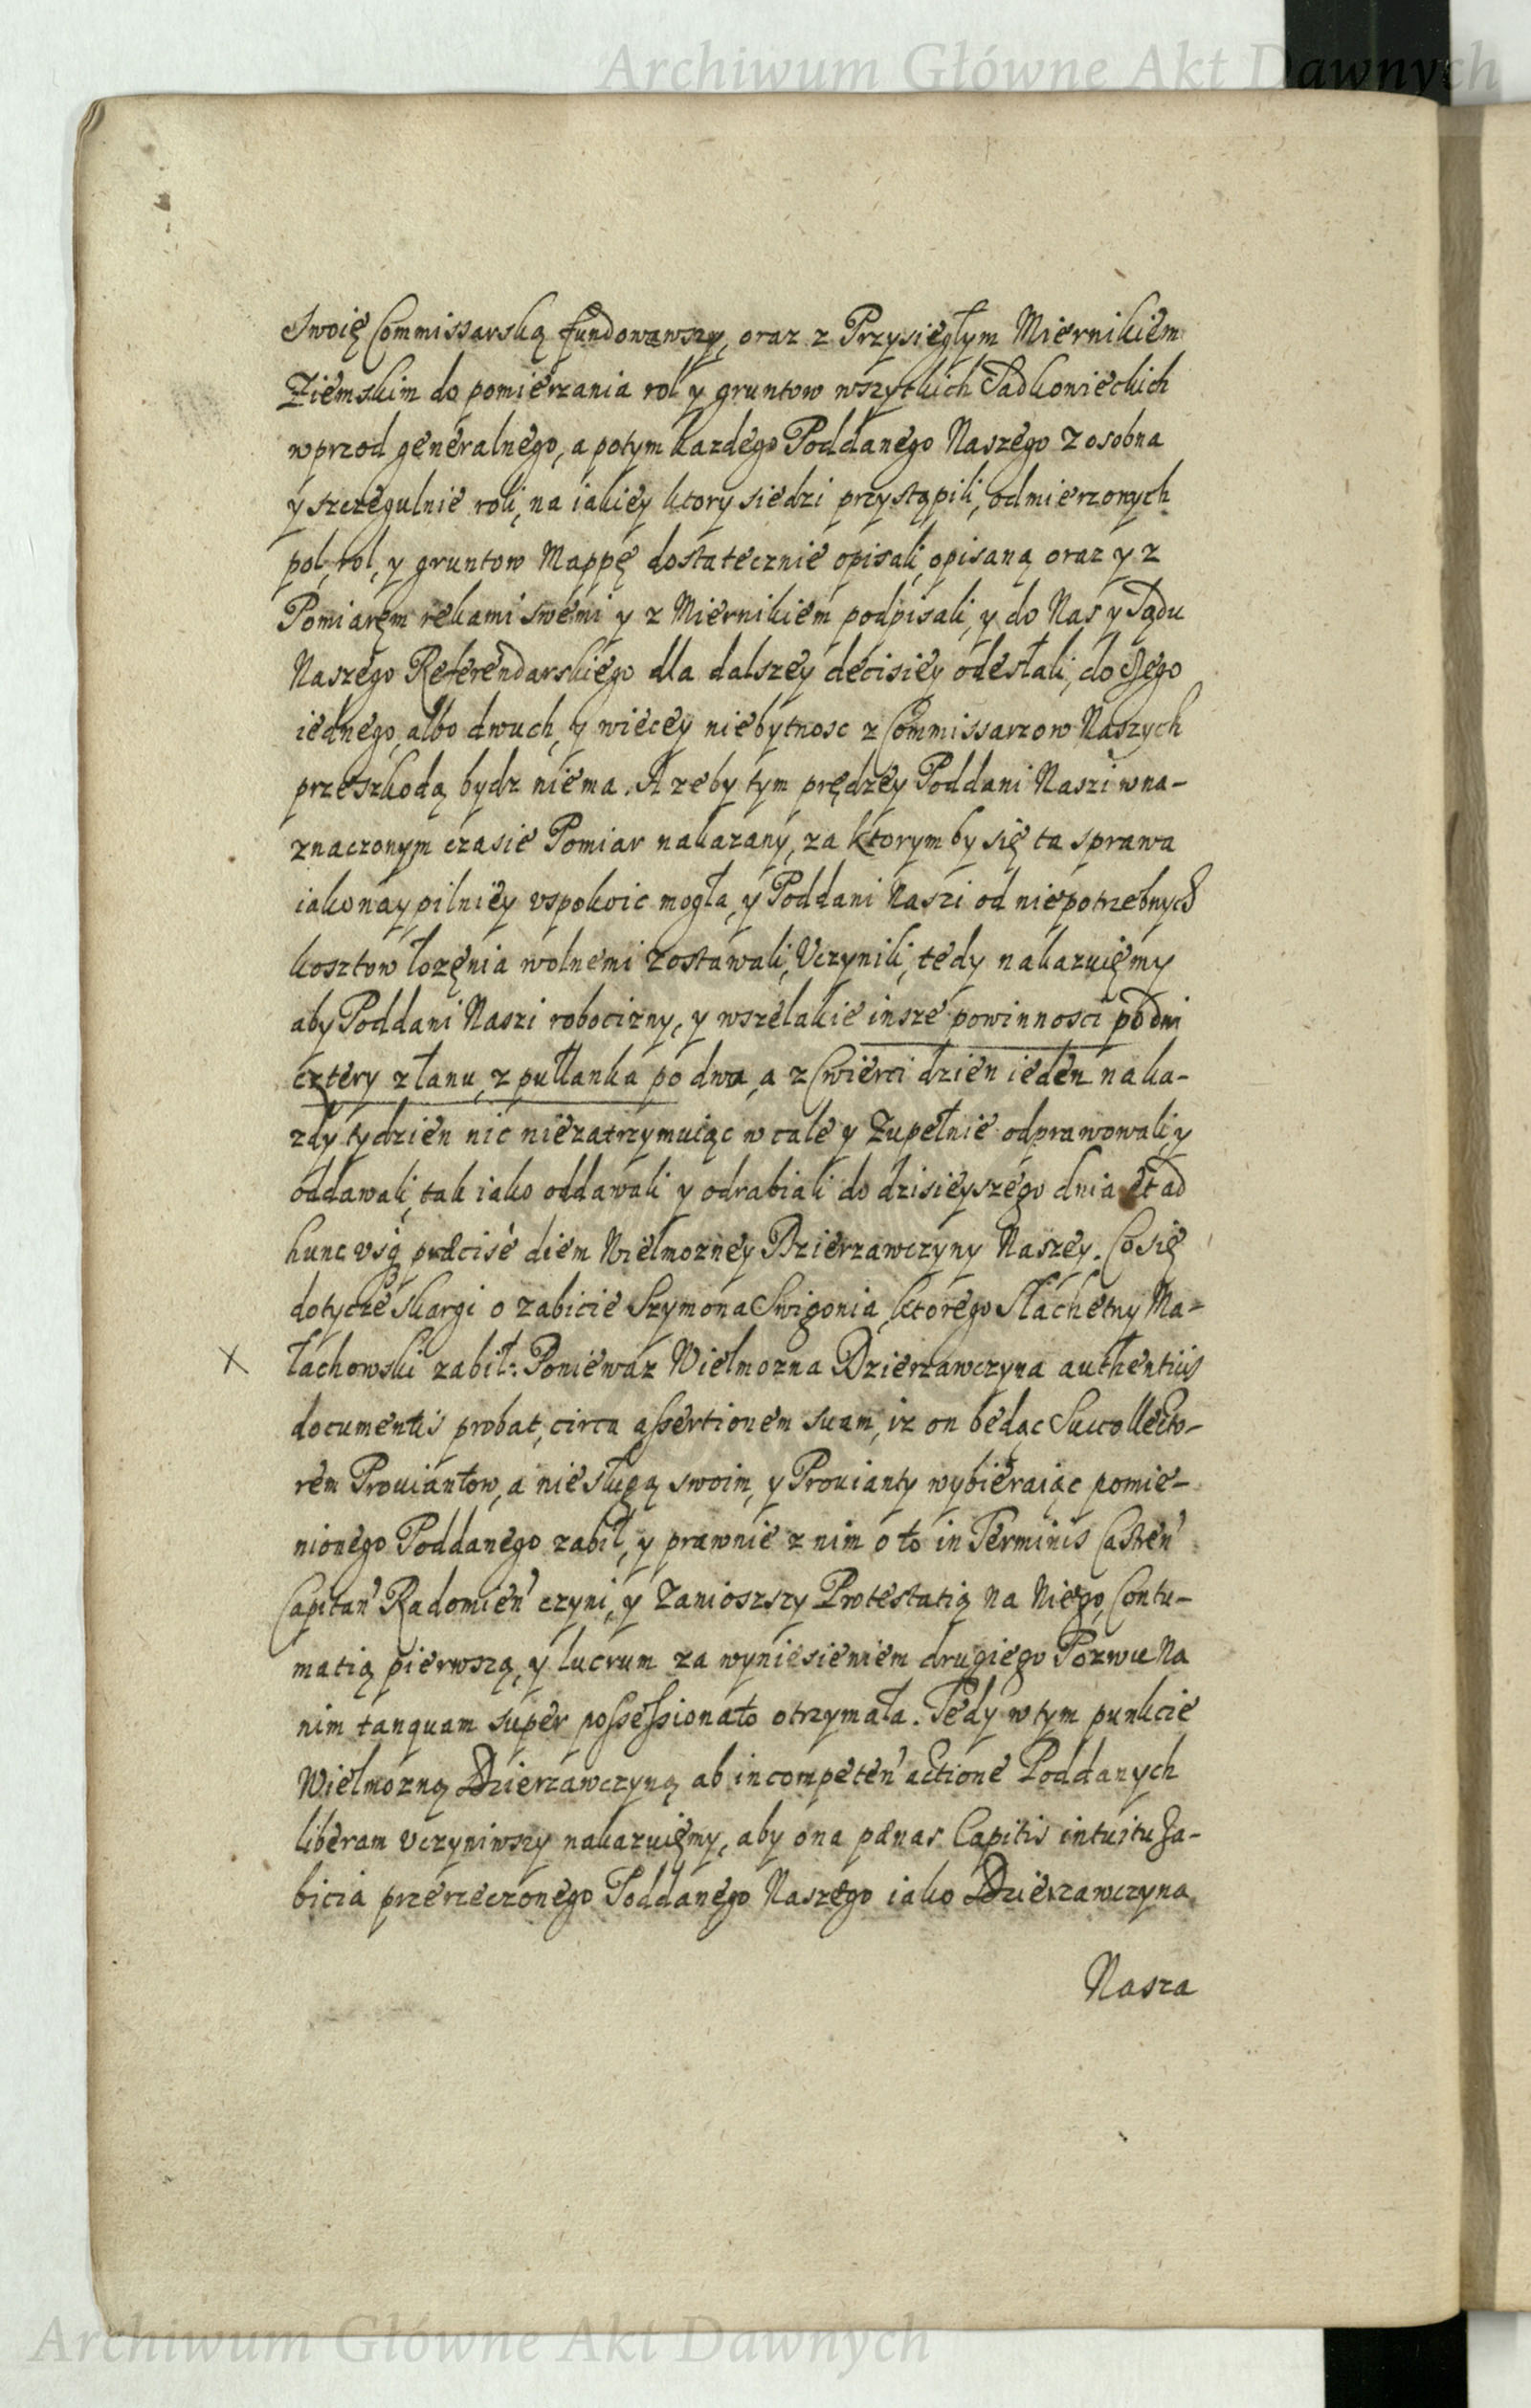 Archiwum Główne Akt Dawnych
Swoię Commissarską fundowawszy, oraz z Przysięgłym Miernikiem
Ziemskim do pomierzania rol y gruntow wszytkich Sadkowieckich
wprzod generalnego, a potym kazdego Poddanego Naszego z osobna
y szczegulnie roli, na iakiey ktory siedzi przystąpili, odmierzonych
pol, rol, y gruntow Mappę dostatecznie opisali, opisaną oraz y z
Pomiarem rekami swemi y z Miernikiem podpisali, y do Nas y Sądu
Naszego Referendarskiego dla dalszey decisiey odesłali, do czego
iednego, albo dwuch, y wiecey niebytnosc z Commissarzow Naszych
przeszkodą bydz niema. A zeby tym prędzey Poddani Naszi w na-
znaczonym czasie Pomiar nakazany, za ktorym by się ta sprawa
iako naypilniey vspokoic mogła, y Poddani Naszi od niepotrzebnych
kosztow łozęnia wolnemi zostawali, Vczynili, tedy nakazuięmy
aby Poddani Naszi robocizny, y wszelakie insze powinnosci po dni
cztery z łanu, z pułłanka po dwa, a z Cwierci dzien ieden na ka-
zdy tydzien nic niezatrzymuiąc w cale y Zupełnie odprawowali y
oddawali, tak iako oddawali y odrabiali do dzisieyszego dnia et ad
hunc vsq præcise diem Wielmozney Dzierzawczyny Naszey. Co się
dotycze skargi o zabicie Szymona Swigonia, ktorego Słachetny Ma-
X łachowski zabił: Poniewaz Wielmozna Dzierzawczyna authenticis
documentis probat, circa assertionem suam, iz on będąc Succollecto-
rem Prouiantow, a nie sługą swoim, y Prouianty wybieraiąc pomie-
nionego Poddanego zabił, y prawnie z nim o to in Terminis Castren
Capitan Radomien czyni, y Zaniozszy Protestatią na Niego, Contu-
matią pierwszą, y lucrum za wyniesieniem drugiego Pozwu Na
nim tanquam super possessionato otrzymała. Tedy w tym punkcie
Wielmozną Dzierzawczyną ab incompeten actione Poddanych
liberam vczyniwszy nakazuięmy, aby ona pænas Capitis intuitu Za-
bicia przerzeczonego Poddanego Naszego iako Dzierzawczyna
Nasza
Archiwum Główne Akt Dawnych